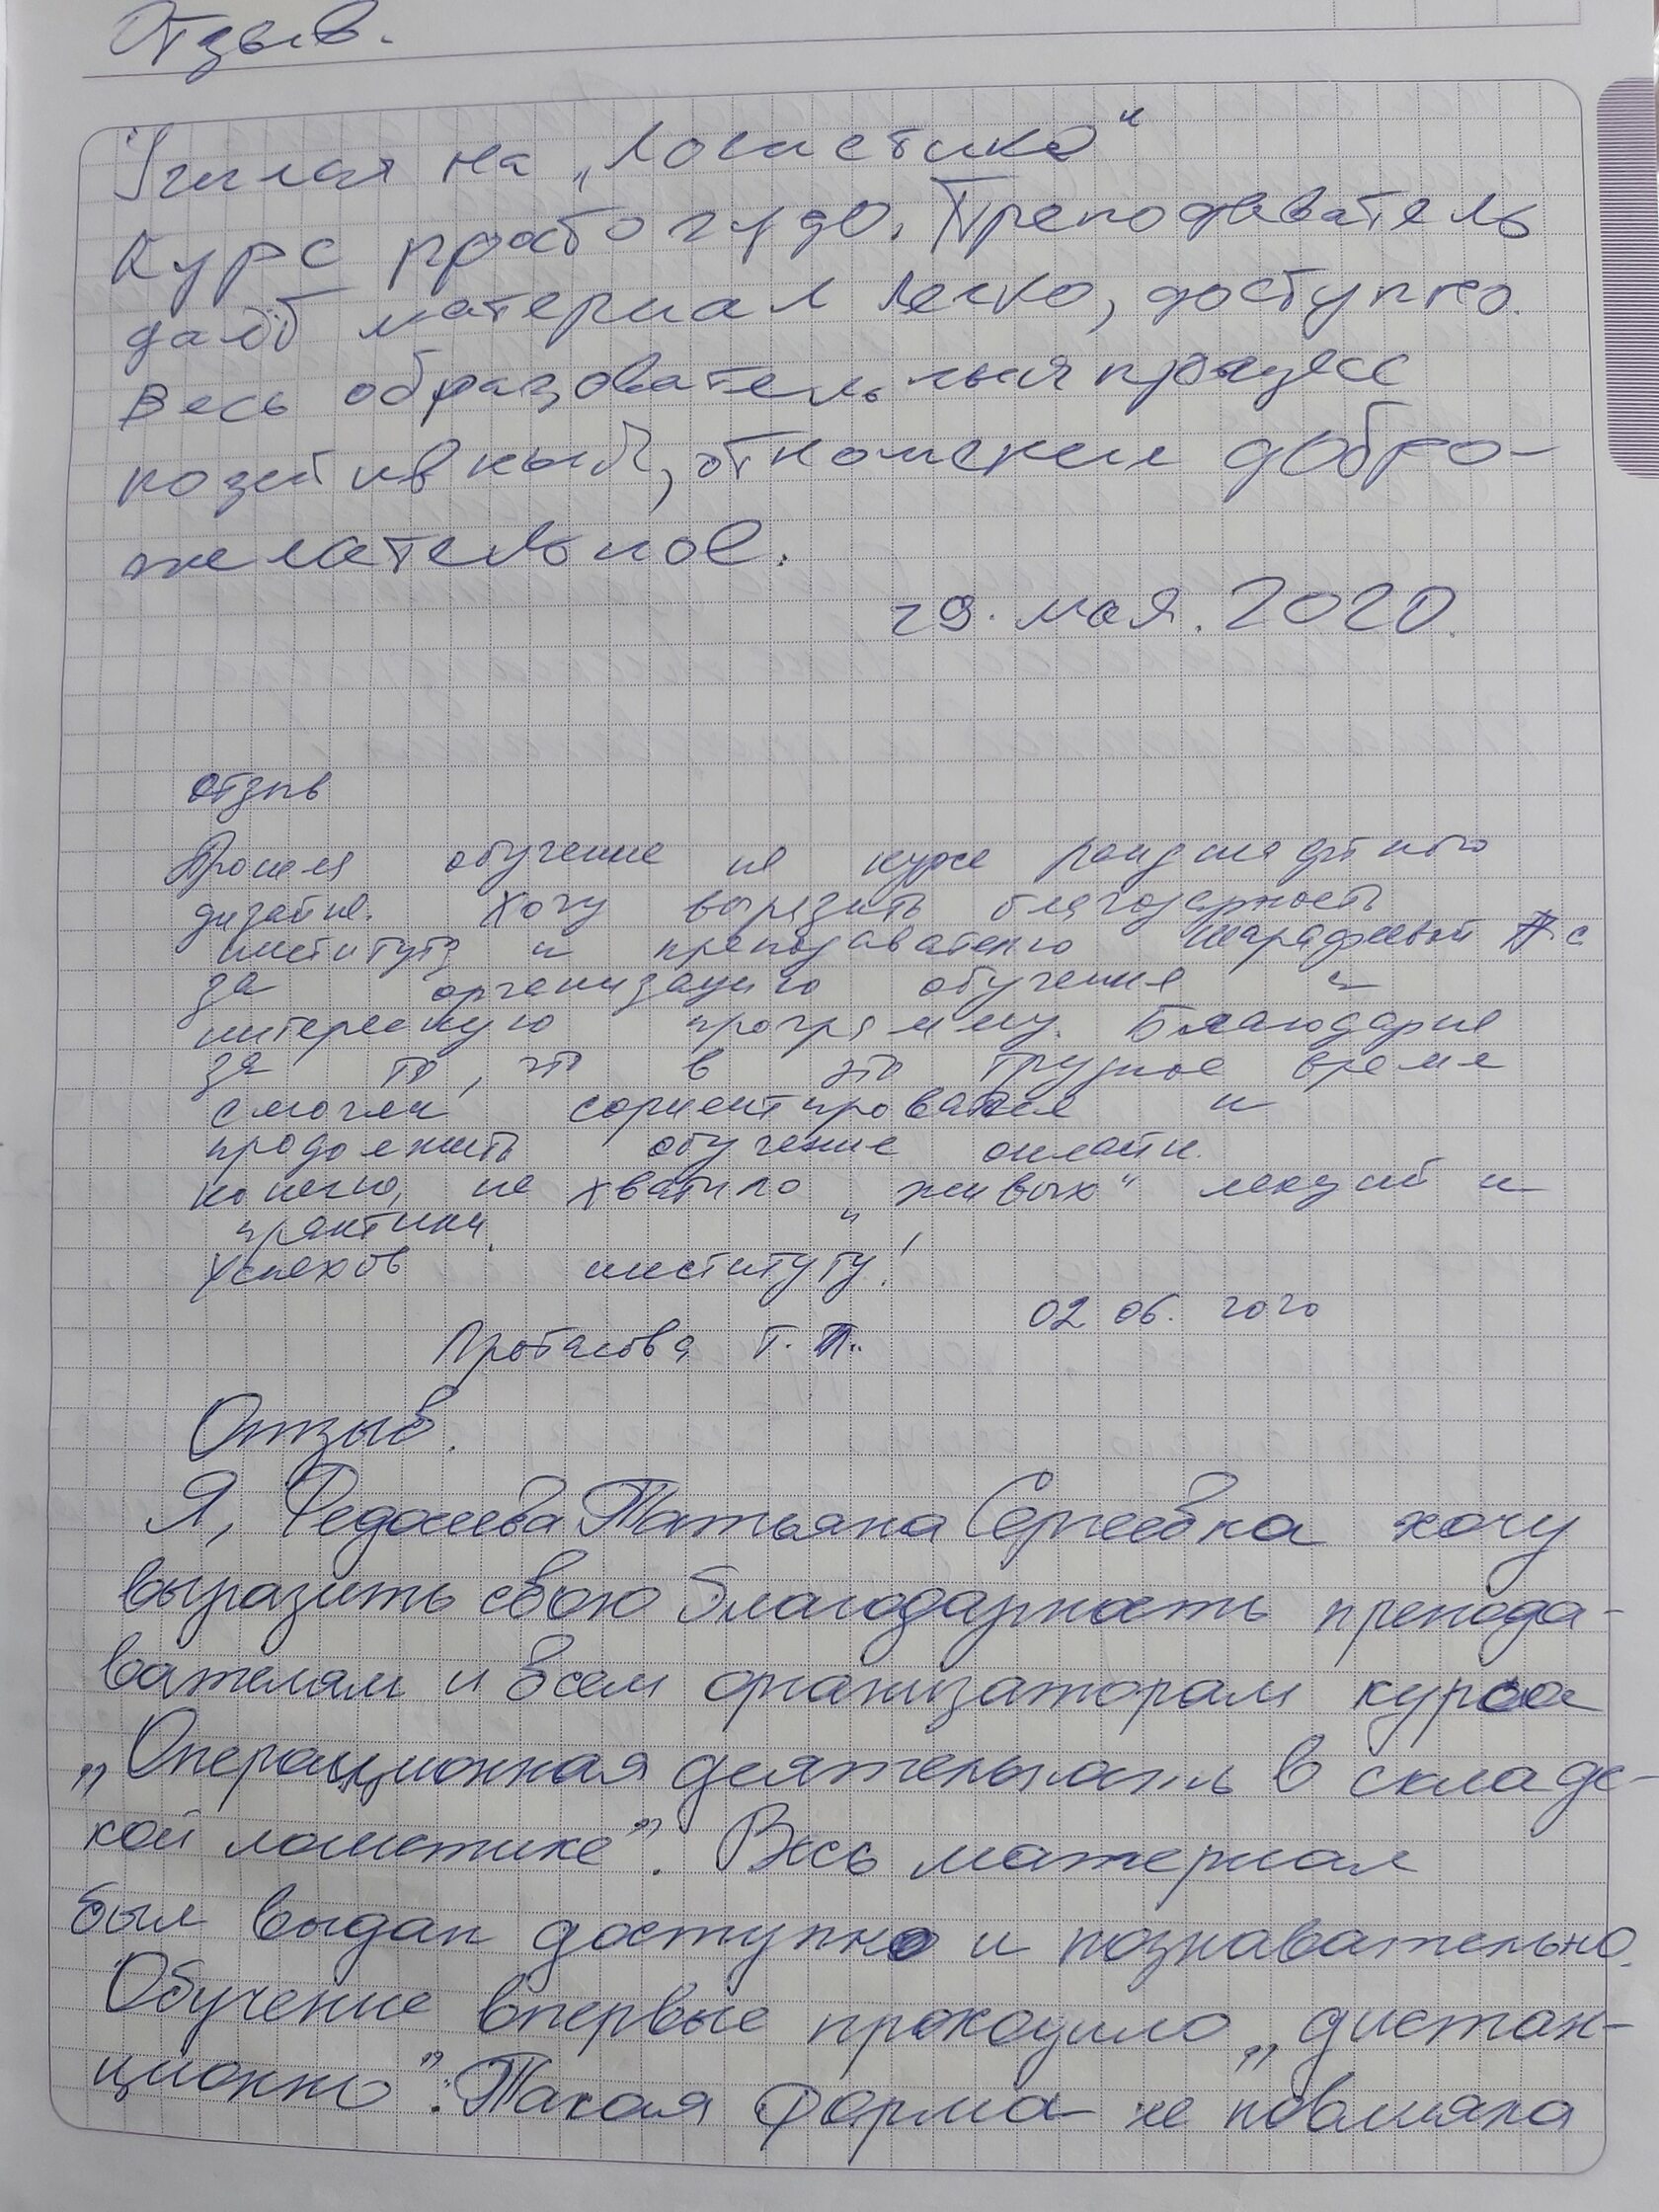 Отзыв.
Училась на „Логистика"
Курс просто чудо. Преподаватель
даёт материал легко, доступно.
Весь образовательный процесс
позитивный, отношение добро-
желательное.
29. мая. 2020.
Отзыв
Прошла обучение на курсе ландшафтного
дизайна. Хочу выразить благодарность
институту и преподавателю Шарафеевой
за организацию обучения и
интересную программу. Благодарна
за то, что в это трудное время
смогли сориентироваться и
продолжить обучение онлайн.
Конечно, не хватило „живых" лекций и
практики.
Успехов институту!
02 06. 2020
Протасова Т. П.
Отзыв.
Я, Федосеева Татьяна Сергеевна хочу
выразить свою благодарность препода-
вателям и всем организаторам курса
„Операционная деятельность в складс-
кой логистике". Весь материал
был выдан доступно и познавательно.
Обучение впервые проходило „дистан-
ционно". Такая форма не повлияла